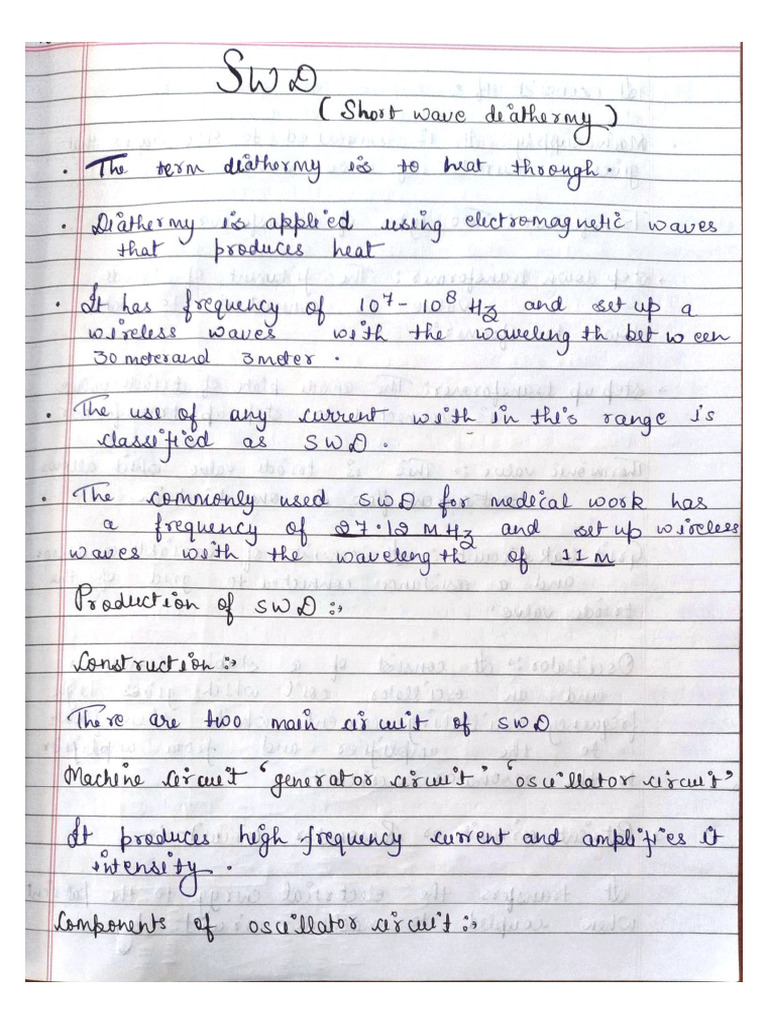 SWD
(Short wave diathermy)
. The term diathermy is to heat through.
. Diathermy is applied using electromagnetic waves
that produces heat
. It has frequency of 10⁷-10⁸ Hz and set up a
wireless waves with the waveleng th bet ween
30 meter and 3 meter.
. The use of any current with in this range is
classified as SWD.
. The commonly used SWD for medical work has
a frequency of 27.12 MHz and set up wireless
waves with the waveleng th of 11 M
Production of SWD :-
Construction :-
There are two main circuit of SWD
Machine circuit 'generator circuit' 'oscillator circuit'
It produces high frequency current and amplifies it
intensity.
Components of oscillator circuit :-